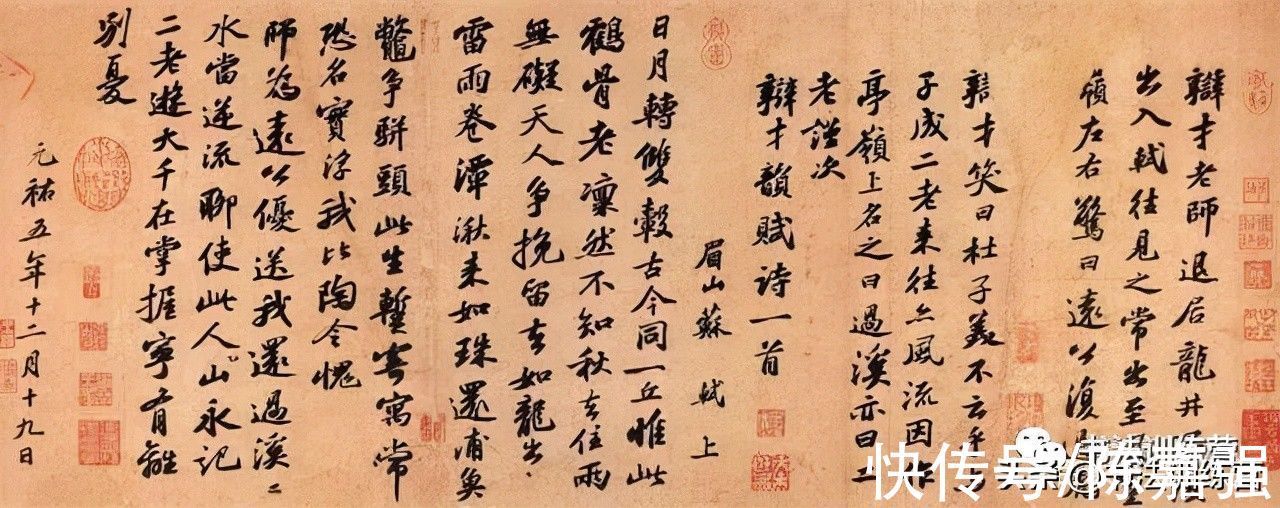 辯才老師退居龍井
出入軾往見之常出至
嶺左右驚曰遠公復
辯才笑曰杜子美不云乎
子成二老來往亦風流因作
亭嶺上名之曰過溪亦曰二
老謹次
辯才韻賦詩一首
眉山蘇軾上
日月轉雙轂古今同一丘惟此
鶴骨老凜然不知秋去住兩
無礙天人爭挽留去如龍出
雷雨卷潭湫來如珠還浦魚
鼈爭駢頭此生暫寄寓常
恐名實浮我比陶令愧
師為遠公優送我還過溪〻
水當逆流聊使此人山永記
二老遊大千在掌握寧有離
別憂
元祐五年十二月十九日
快传号/陈嘉强